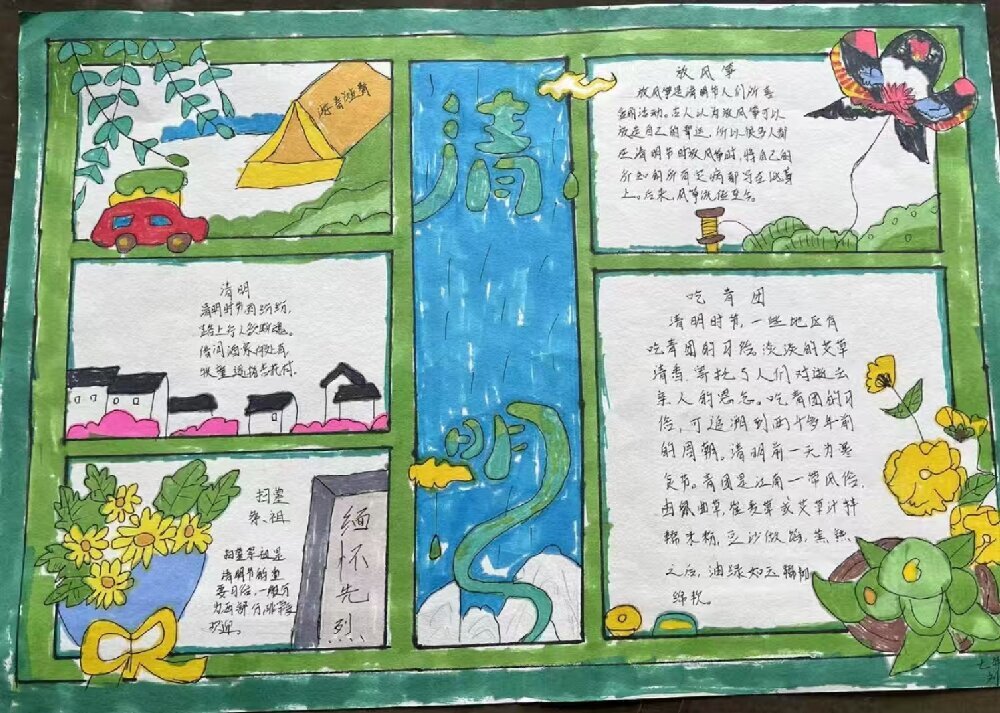 清明
清明
清明时节雨纷纷,
路上行人欲断魂。
借问酒家何处有
牧童遥指杏花村。
扫墓
祭祖
扫墓祭祖是
清明节的重
要习俗,一般分
为两部分
缅
怀
先
烈
放风筝
放风筝是清明节人们所喜
爱的活动。古人认为放风筝可以
放走自己的晦运,所以很多人都
在清明节时放风筝时,将自己的
所知的所有疾病都写在风筝
上。后来,风筝流传至今。
吃青团
清明时节,一些地区有
吃青团的习俗淡淡的艾草
清香,寄托了人们对逝去
亲人的思念。吃青团的习
俗,可追溯到两千多年前
的周朝。清明前一天为寒
食节。青团是江南一带风俗,
由
糯米粉,豆沙做馅,蒸熟
之后,油绿如玉糯韧
绵软。